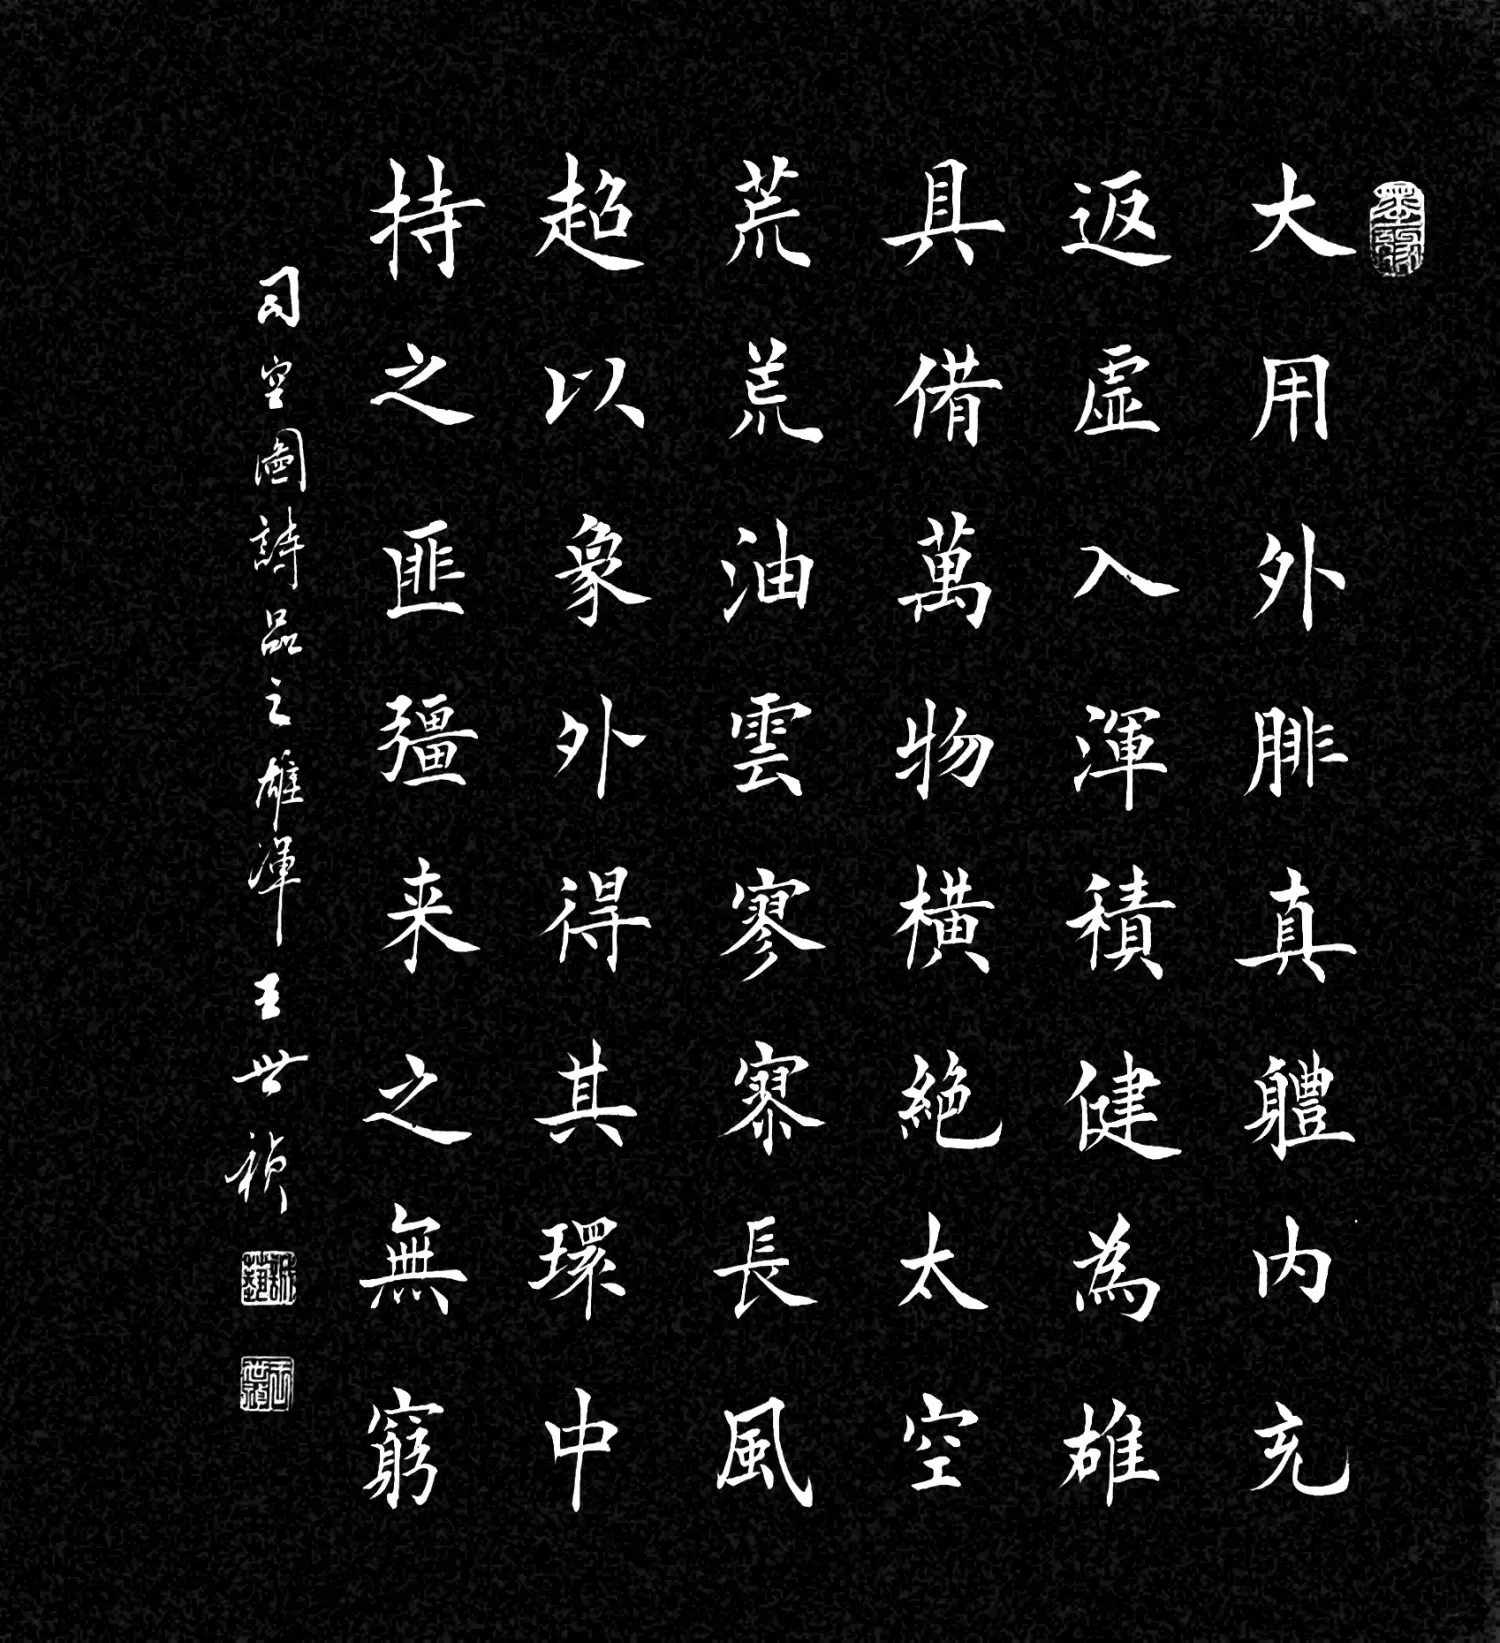 大用外腓真體内充
返虚入渾積健為雄
具備萬物橫絶太空
荒荒油雲寥寥長風
超以象外得其環中
持之匪彊来之無窮
司空圖詩品之雄渾 王世禎